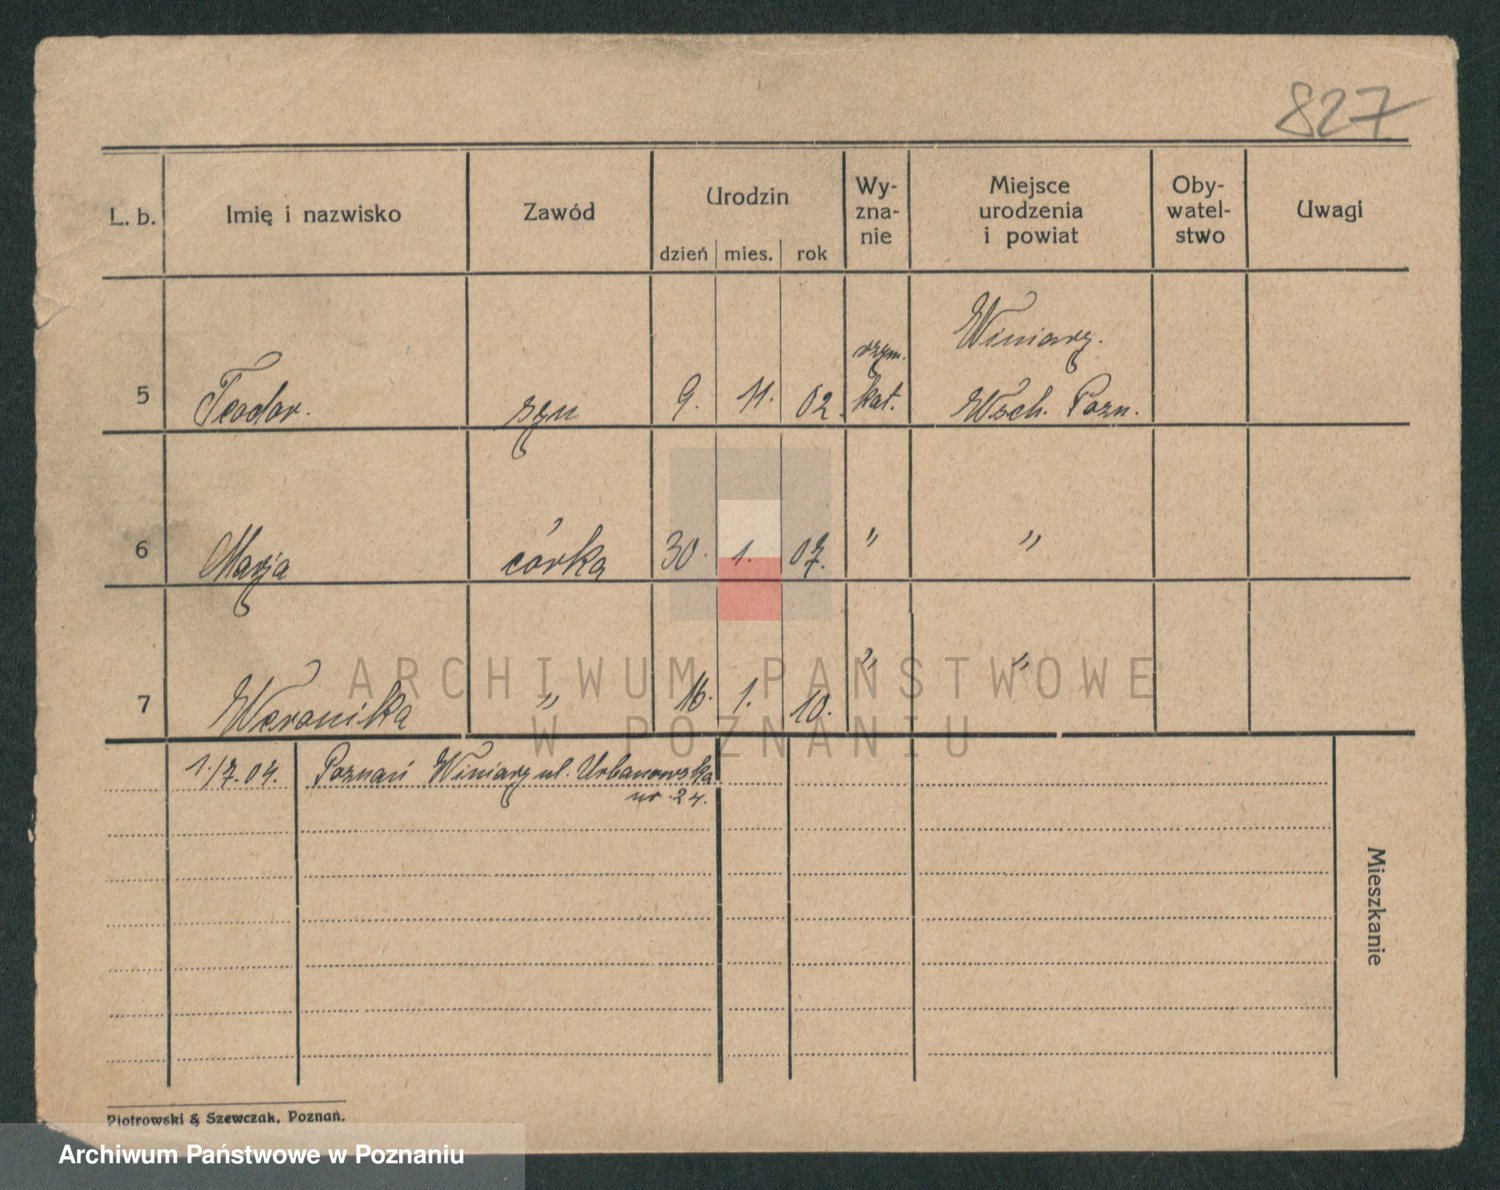 827
L. b. Imię i nazwisko Zawód Urodzin Wy-zna-nie Miejsce urodzenia i powiat Oby-watel-stwo Uwagi
dzień mies. rok
5 Teodor. syn 9. 11. 02. rzym. kat. Winiary. Wsch. Pozn.
6 Marja córka 30. 1. 07. " "
7 Weronika " 16. 1. 10. " "
ARCHIWUM PAŃSTWOWE
W POZNANIU
1./7.04. Poznań Winiary ul. Urbanowska
nr. 24.
Mieszkanie
Piotrowski & Szewczak, Poznań.
Archiwum Państwowe w Poznaniu